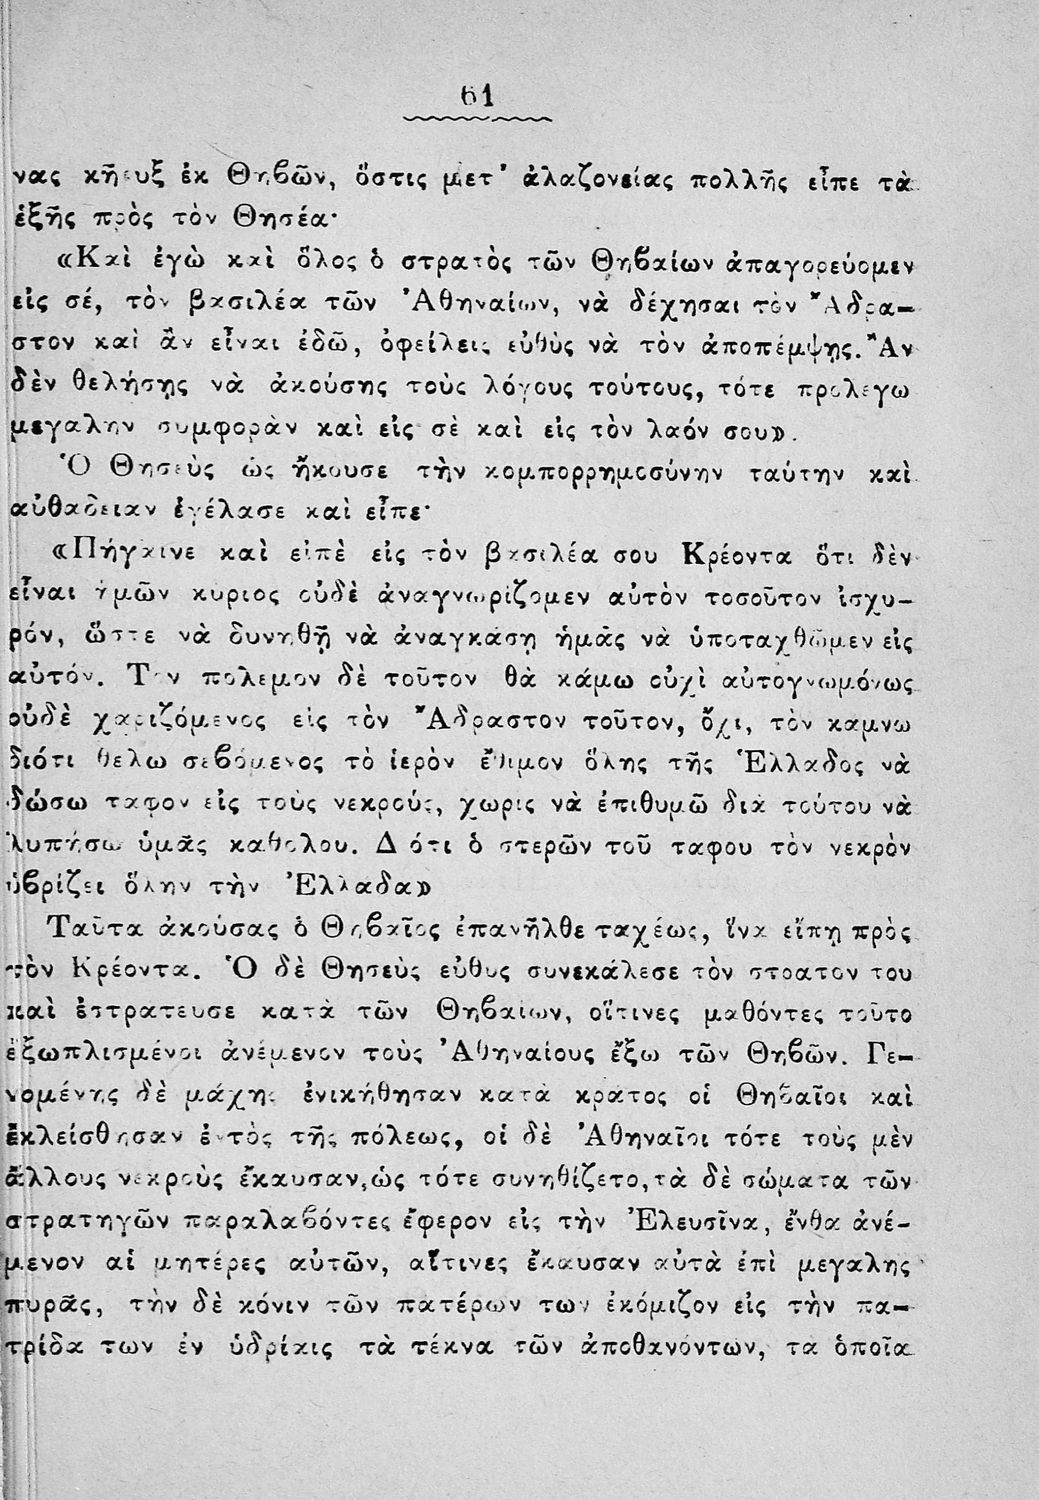 61
νας κήρυξ ἐκ Θηβῶν, ὅστις μετ' ἀλαζονείας πολλῆς εἶπε τὰ
ἑξῆς πρὸς τὸν Θησέα·
«Καὶ ἐγὼ καὶ ὅλος ὁ στρατὸς τῶν Θηβαίων ἀπαγορεύομεν
εἰς σέ, τὸν βασιλέα τῶν Ἀθηναίων, νὰ δέχησαι τὸν Ἄδρα-
στον καὶ ἂν εἶναι ἐδῶ, ὀφείλεις εὐθὺς νὰ τὸν ἀποπέμψῃς. Ἂν
δὲν θελήσῃς νὰ ἀκούσῃς τοὺς λόγους τούτους, τότε προλέγω
μεγάλην συμφορὰν καὶ εἰς σὲ καὶ εἰς τὸν λαόν σου».
Ὁ Θησεὺς ὡς ἤκουσε τὴν κομπορρημοσύνην ταύτην καὶ
αὐθάδειαν ἐγέλασε καὶ εἶπε·
«Πήγαινε καὶ εἰπὲ εἰς τὸν βασιλέα σου Κρέοντα ὅτι δὲν
εἶναι ἡμῶν κύριος οὐδὲ ἀναγνωρίζομεν αὐτὸν τοσοῦτον ἰσχυ-
ρόν, ὥστε νὰ δυνηθῇ νὰ ἀναγκάσῃ ἡμᾶς νὰ ὑποταχθῶμεν εἰς
αὐτόν. Τὸν πόλεμον δὲ τοῦτον θὰ κάμω οὐχὶ αὐτογνωμόνως
οὐδὲ χαριζόμενος εἰς τὸν Ἄδραστον τοῦτον, ὄχι, τὸν κάμνω
διότι θέλω σεβόμενος τὸ ἱερὸν ἔθιμον ὅλης τῆς Ἑλλάδος νὰ
δώσω τάφον εἰς τοὺς νεκρούς, χωρὶς νὰ ἐπιθυμῶ διὰ τούτου νὰ
λυπήσω ὑμᾶς καθόλου. Διότι ὁ στερῶν τοῦ τάφου τὸν νεκρὸν
ὑβρίζει ὅλην τὴν Ἑλλάδα»
Ταῦτα ἀκούσας ὁ Θηβαῖος ἐπανῆλθε ταχέως, ἵνα εἴπῃ πρὸς
τὸν Κρέοντα. Ὁ δὲ Θησεὺς εὐθὺς συνεκάλεσε τὸν στρατόν του
καὶ ἐστράτευσε κατὰ τῶν Θηβαίων, οἵτινες μαθόντες τοῦτο
ἐξωπλισμένοι ἀνέμενον τοὺς Ἀθηναίους ἔξω τῶν Θηβῶν. Γε-
νομένης δὲ μάχης ἐνικήθησαν κατὰ κράτος οἱ Θηβαῖοι καὶ
ἐκλείσθησαν ἐντὸς τῆς πόλεως, οἱ δὲ Ἀθηναῖοι τότε τοὺς μὲν
ἄλλους νεκροὺς ἔκαυσαν, ὡς τότε συνηθίζετο, τὰ δὲ σώματα τῶν
στρατηγῶν παραλαβόντες ἔφερον εἰς τὴν Ἐλευσῖνα, ἔνθα ἀνέ-
μενον αἱ μητέρες αὐτῶν, αἵτινες ἔκαυσαν αὐτὰ ἐπὶ μεγάλης
πυρᾶς, τὴν δὲ κόνιν τῶν πατέρων των ἐκόμιζον εἰς τὴν πα-
τρίδα των ἐν ὑδρίαις τὰ τέκνα τῶν ἀποθανόντων, τὰ ὁποῖα